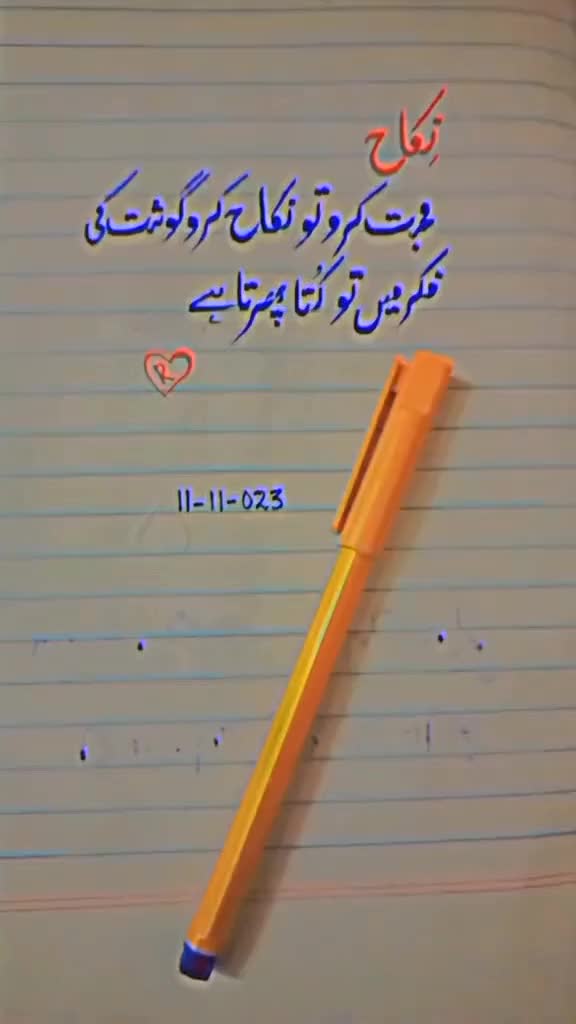 نِکاح
محبت کرو تو نکاح کرو گوشت کی
فکر میں تو کُتا پھرتا ہے
R
11-11-023